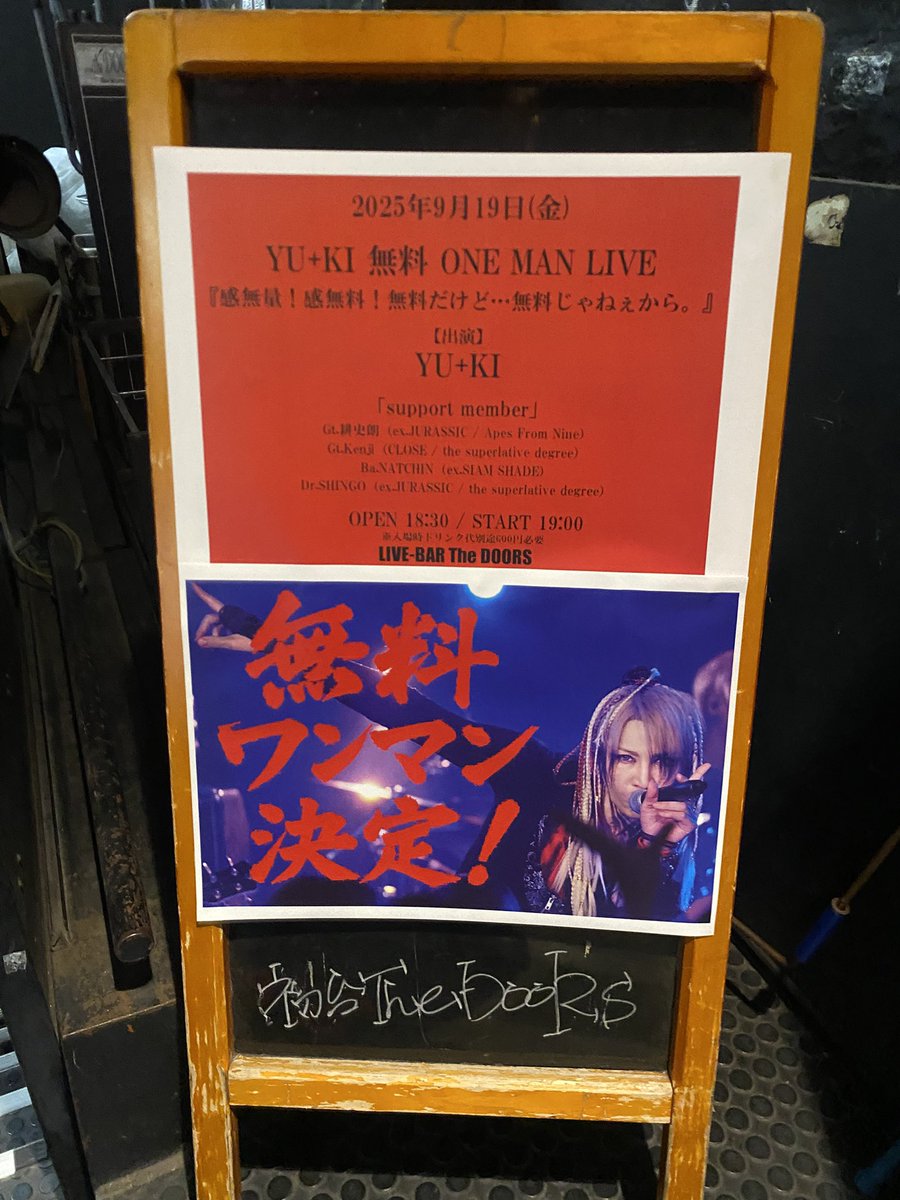 2025年9月19日(金)
YU+KI 無料 ONE MAN LIVE
『感無量!感無料!無料だけど…無料じゃねぇから。』
【出演】
YU+KI
「support member」
Gt.耕史朗（ex.JURASSIC / Apes From Nine）
Gt.Kenji（CLOSE / the superlative degree）
Ba.NATCHIN（ex.SIAM SHADE）
Dr.SHINGO（ex.JURASSIC / the superlative degree）
OPEN 18:30 / START 19:00
※入場時ドリンク代別途600円必要
LIVE-BAR The DOORS
無料
ワンマン
決定!
The DOORS